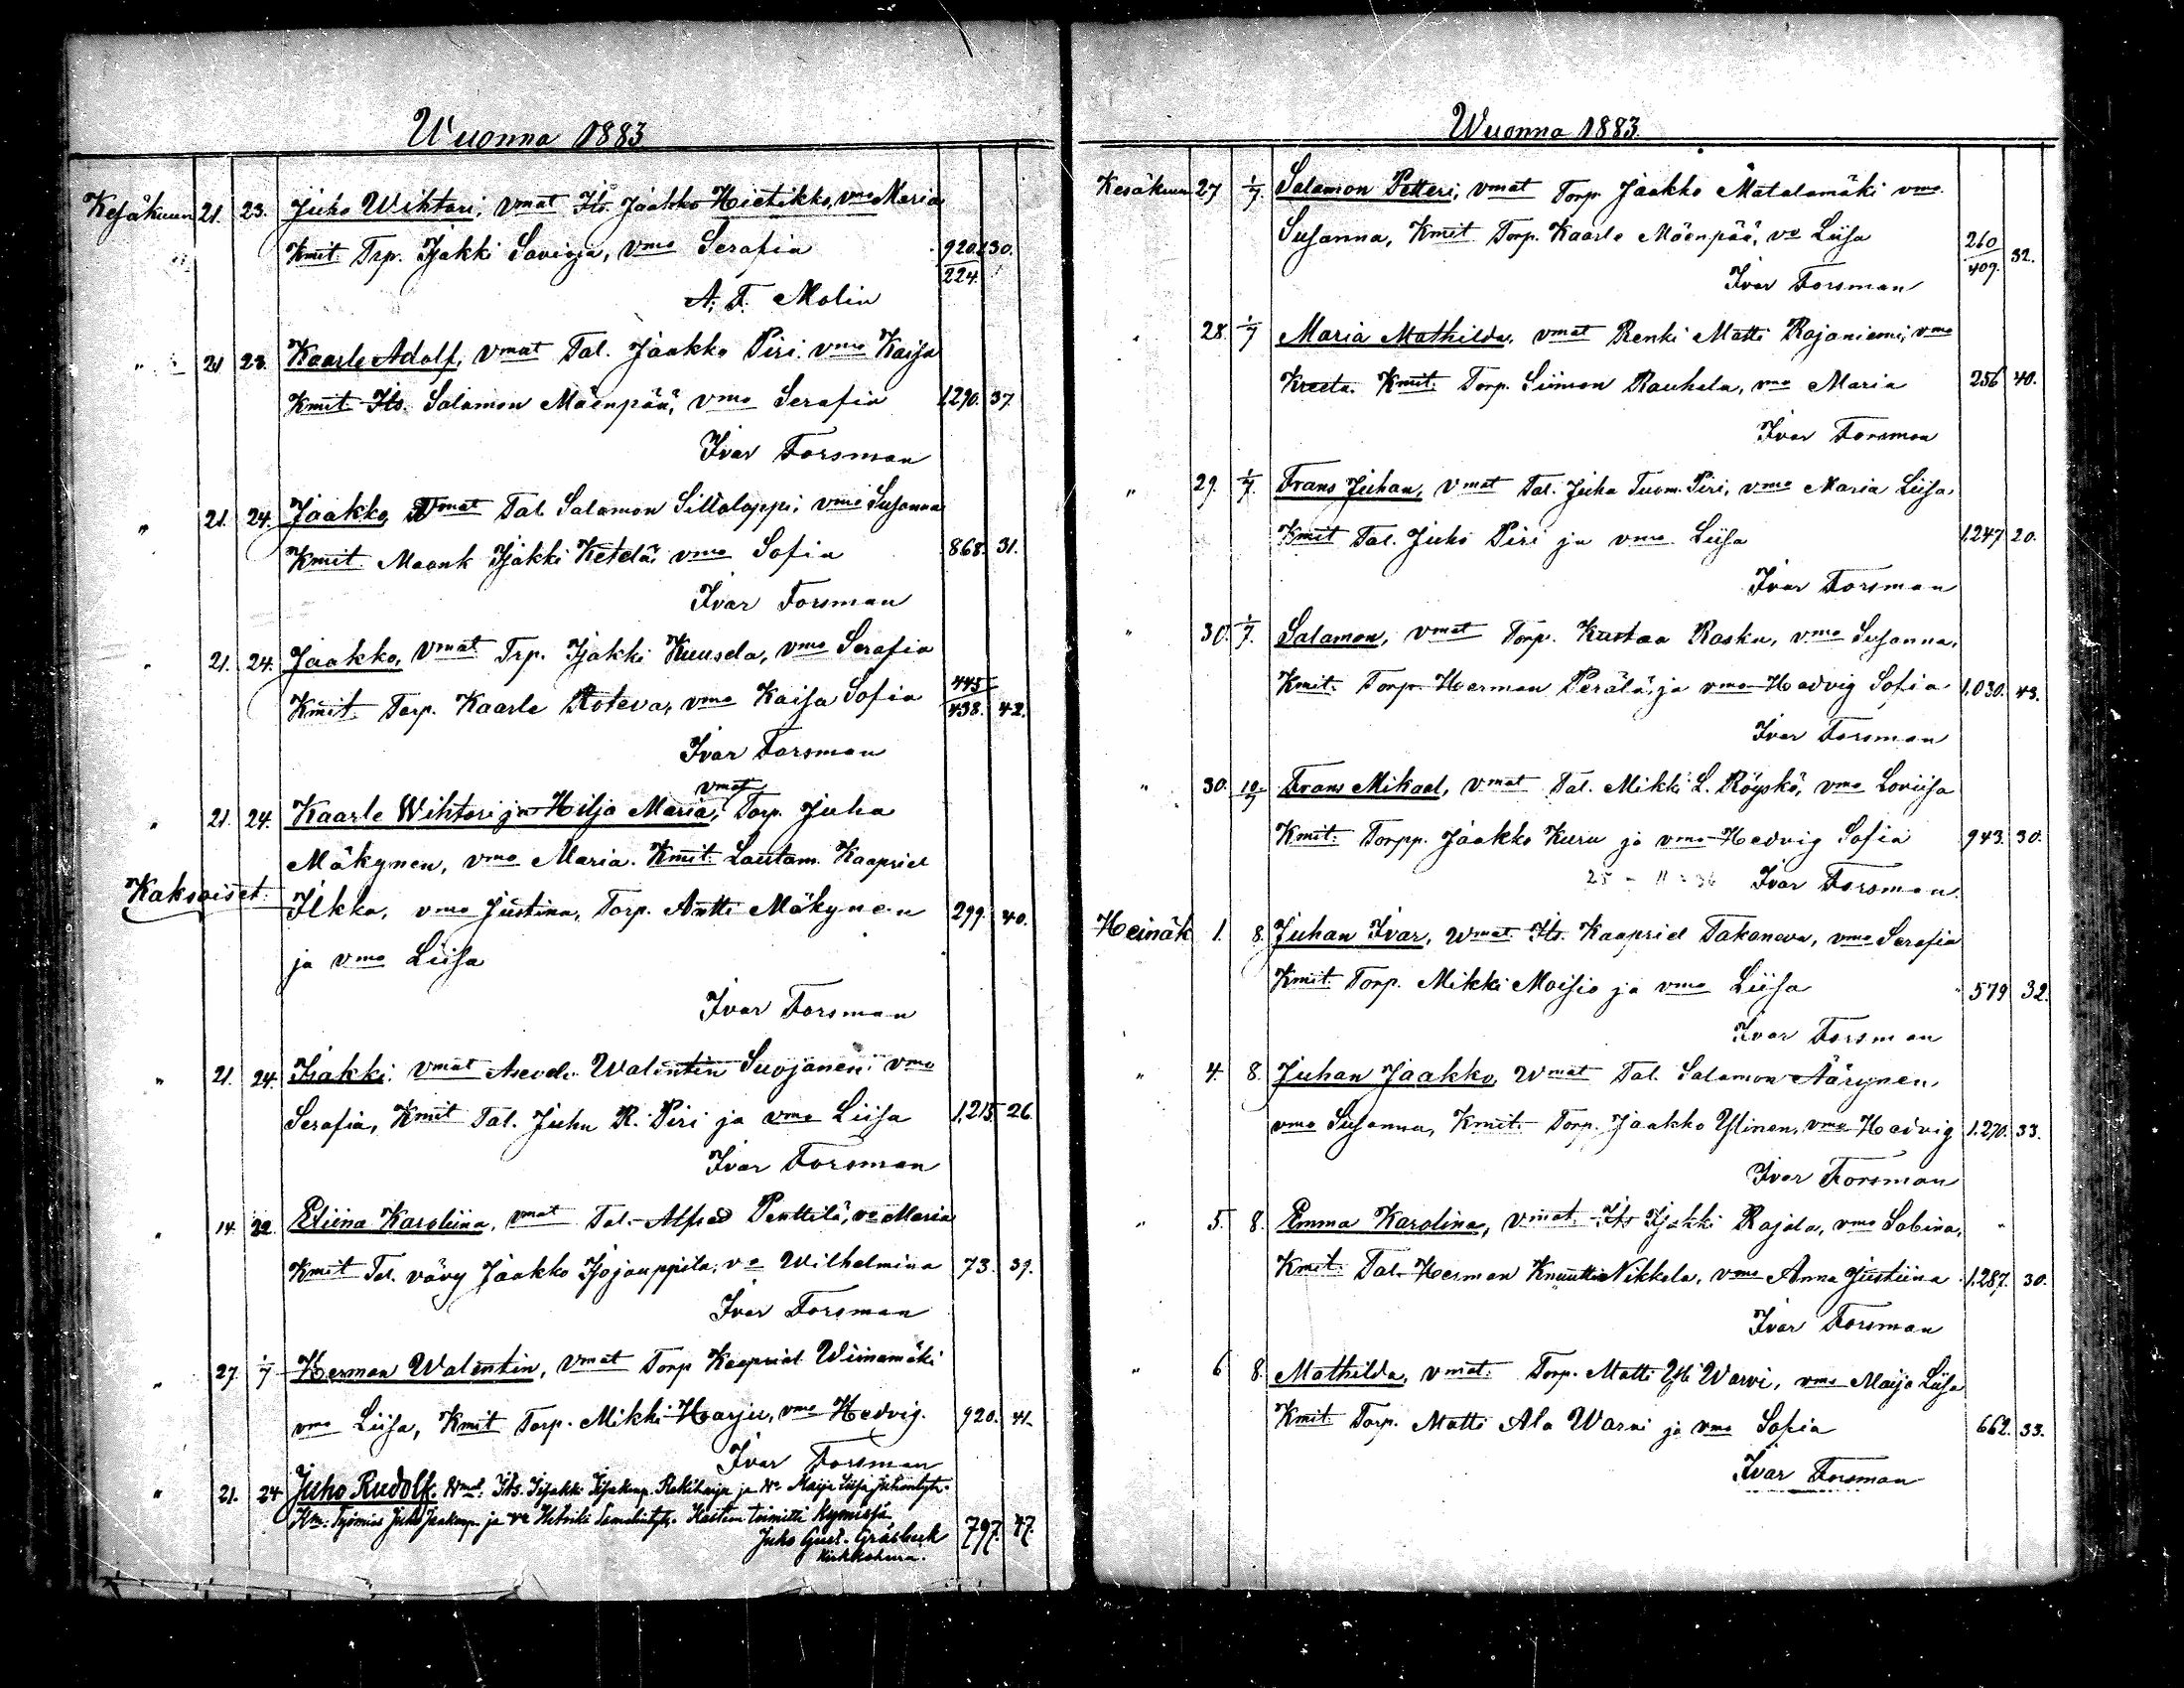 Wuonna 1883
Kesäkuun 21. 23. Juho Wihtori, vmat Its. Jaakko Hietikko, vmo Maria
Kmit. Trp. Isakki Savioja, vmo Serafia 920. 30.
224.
A. F. Molin
" 21 23. Kaarle Adolf, vmat Tal. Jaakko Piri vmo Kaisa
Kmit Its. Salamon Mäenpää, vmo Serafia 1290. 37.
Ivar Forsman
" 21. 24. Jaakko, vmat Tal. Salamon Siltaloppi, vmo Susanna
Kmit Maank Isakki Ketelä, vmo Sofia 868. 31.
Ivar Forsman
" 21. 24. Jaakko, vmat Trp. Isakki Kuusela, vmo Serafia
Kmit. Torp. Kaarle Roteva, vmo Kaisa Sofia 445
438. 42.
Ivar Forsman
" 21. 24. Kaarle Wihtori ja Hilja Maria, vmat Torp. Juha
Mäkynen, vmo Maria. Kmit. Lautam. Kaapriel
Kaksoiset. Ilkka, vmo Justina, Torp. Antti Mäkynen 299. 40.
ja vmo Liisa
Ivar Forsman
" 21. 24. Isakki, vmat Walentin Suojanen, vmo
Serafia, Kmit Tal. Juha R. Piri ja vmo Liisa 1,215 26
Ivar Forsman
" 14. 22. Eliina Karoliina, vmat Tal. Alfred Penttilä, vo Maria
Kmit Tal. vävy Jaakko Isojauppila, vo Wilhelmina 73. 39.
Ivar Forsman
" 27. 1/7 Herman Walentin, vmat Torp Kaapriel Wiinamäki
vmo Liisa, Kmit Torp. Mikki Harju, vmo Hedvig. 920. 41.
Ivar Forsman
" 21. 24 Juho Rudolf. Wmat. Its. Iisakki Iisakinp. Rakiharju ja Wo Maija Liisa Juhontytär.
Km. Työmies Juho Jaakonp. ja vo Hetviki Samelintytär. Kasteen toimitti Kymissä
Juho Gust. Gråsbeck 797. 47.
Kirkkoherra.
Wuonna 1883.
Kesäkuun 27 1/7. Salamon Petteri, vmat Torp. Jaakko Matalamäki vmo
Susanna, Kmit Torp. Kaarle Mäenpää, vo Liisa 260
409. 32.
Ivar Forsman
" 28. 1/7 Maria Mathilda, vmat Renki Matti Rajaniemi, vmo
Kreeta. Kmit. Torp. Siimon Rauhala, vmo Maria 256 40.
Ivar Forsman
" 29. 1/7. Frans Juhan, vmat Tal. Juha Tuom. Piri, vmo Maria Liisa,
Kmit Tal. Juho Piri ja vmo Liisa 1247 20.
Ivar Forsman
" 30. 1/7. Salamon, vmat Torp. Kustaa Rasku, vmo Susanna,
Kmit. Torp Herman Perälä, ja vmo Hedvig Sofia 1,030. 43.
Ivar Forsman
" 30. 10/7 Frans Mikael, vmat Tal. Mikki L. Röyskö, vmo Loviisa
Kmit. Torpp. Jaakko Kuru ja vmo Hedvig Sofia 943. 30.
Ivar Forsman
Heinäk 1. 8. Juhan Ivar, Wmat. Its. Kaapriel Takaneva, vmo Serafia
Kmit. Torp. Mikki Moisio ja vmo Liisa 579 32.
Ivar Forsman
" 4. 8. Juhan Jaakko, Wmat Tal. Salamon Äärynen,
vmo Susanna, Kmit. Torp. Jaakko Ylinen, vmo Hedvig 1.270. 33.
Ivar Forsman
" 5. 8. Emma Karolina, vmat. Its Isakki Rajala, vmo Sabina,
Kmit. Tal. Herman Knuutti Nikkola, vmo Anna Justiina 1.287. 30.
Ivar Forsman
" 6 8. Mathilda, vmat. Torp. Matti Yli Warvi, vmo Maija Liisa
Kmit Torp. Matti Ala Warvi ja vmo Sofia 662. 33.
Ivar Forsman